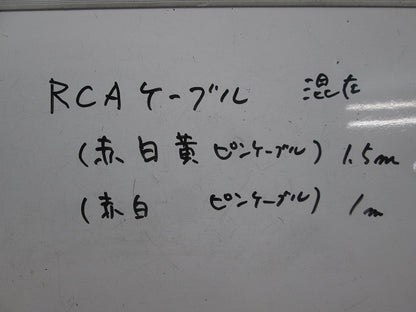 RCAケーブル 混在
(赤白黄ピンケーブル) 1.5m
(赤白 ピンケーブル) 1m